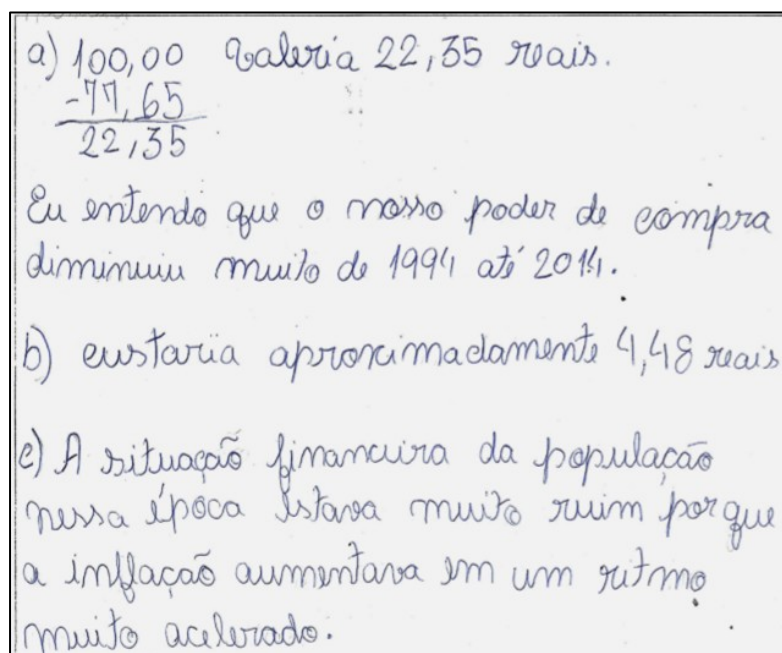 a) 100,00 Valeria 22,35 reais.
-77,65
22,35
Eu entendo que o nosso poder de compra
diminuiu muito de 1994 até 2014.
b) custaria aproximadamente 4,48 reais
c) A situação financeira da população
nessa época estava muito ruim porque
a inflação aumentava em um ritmo
muito acelerado.